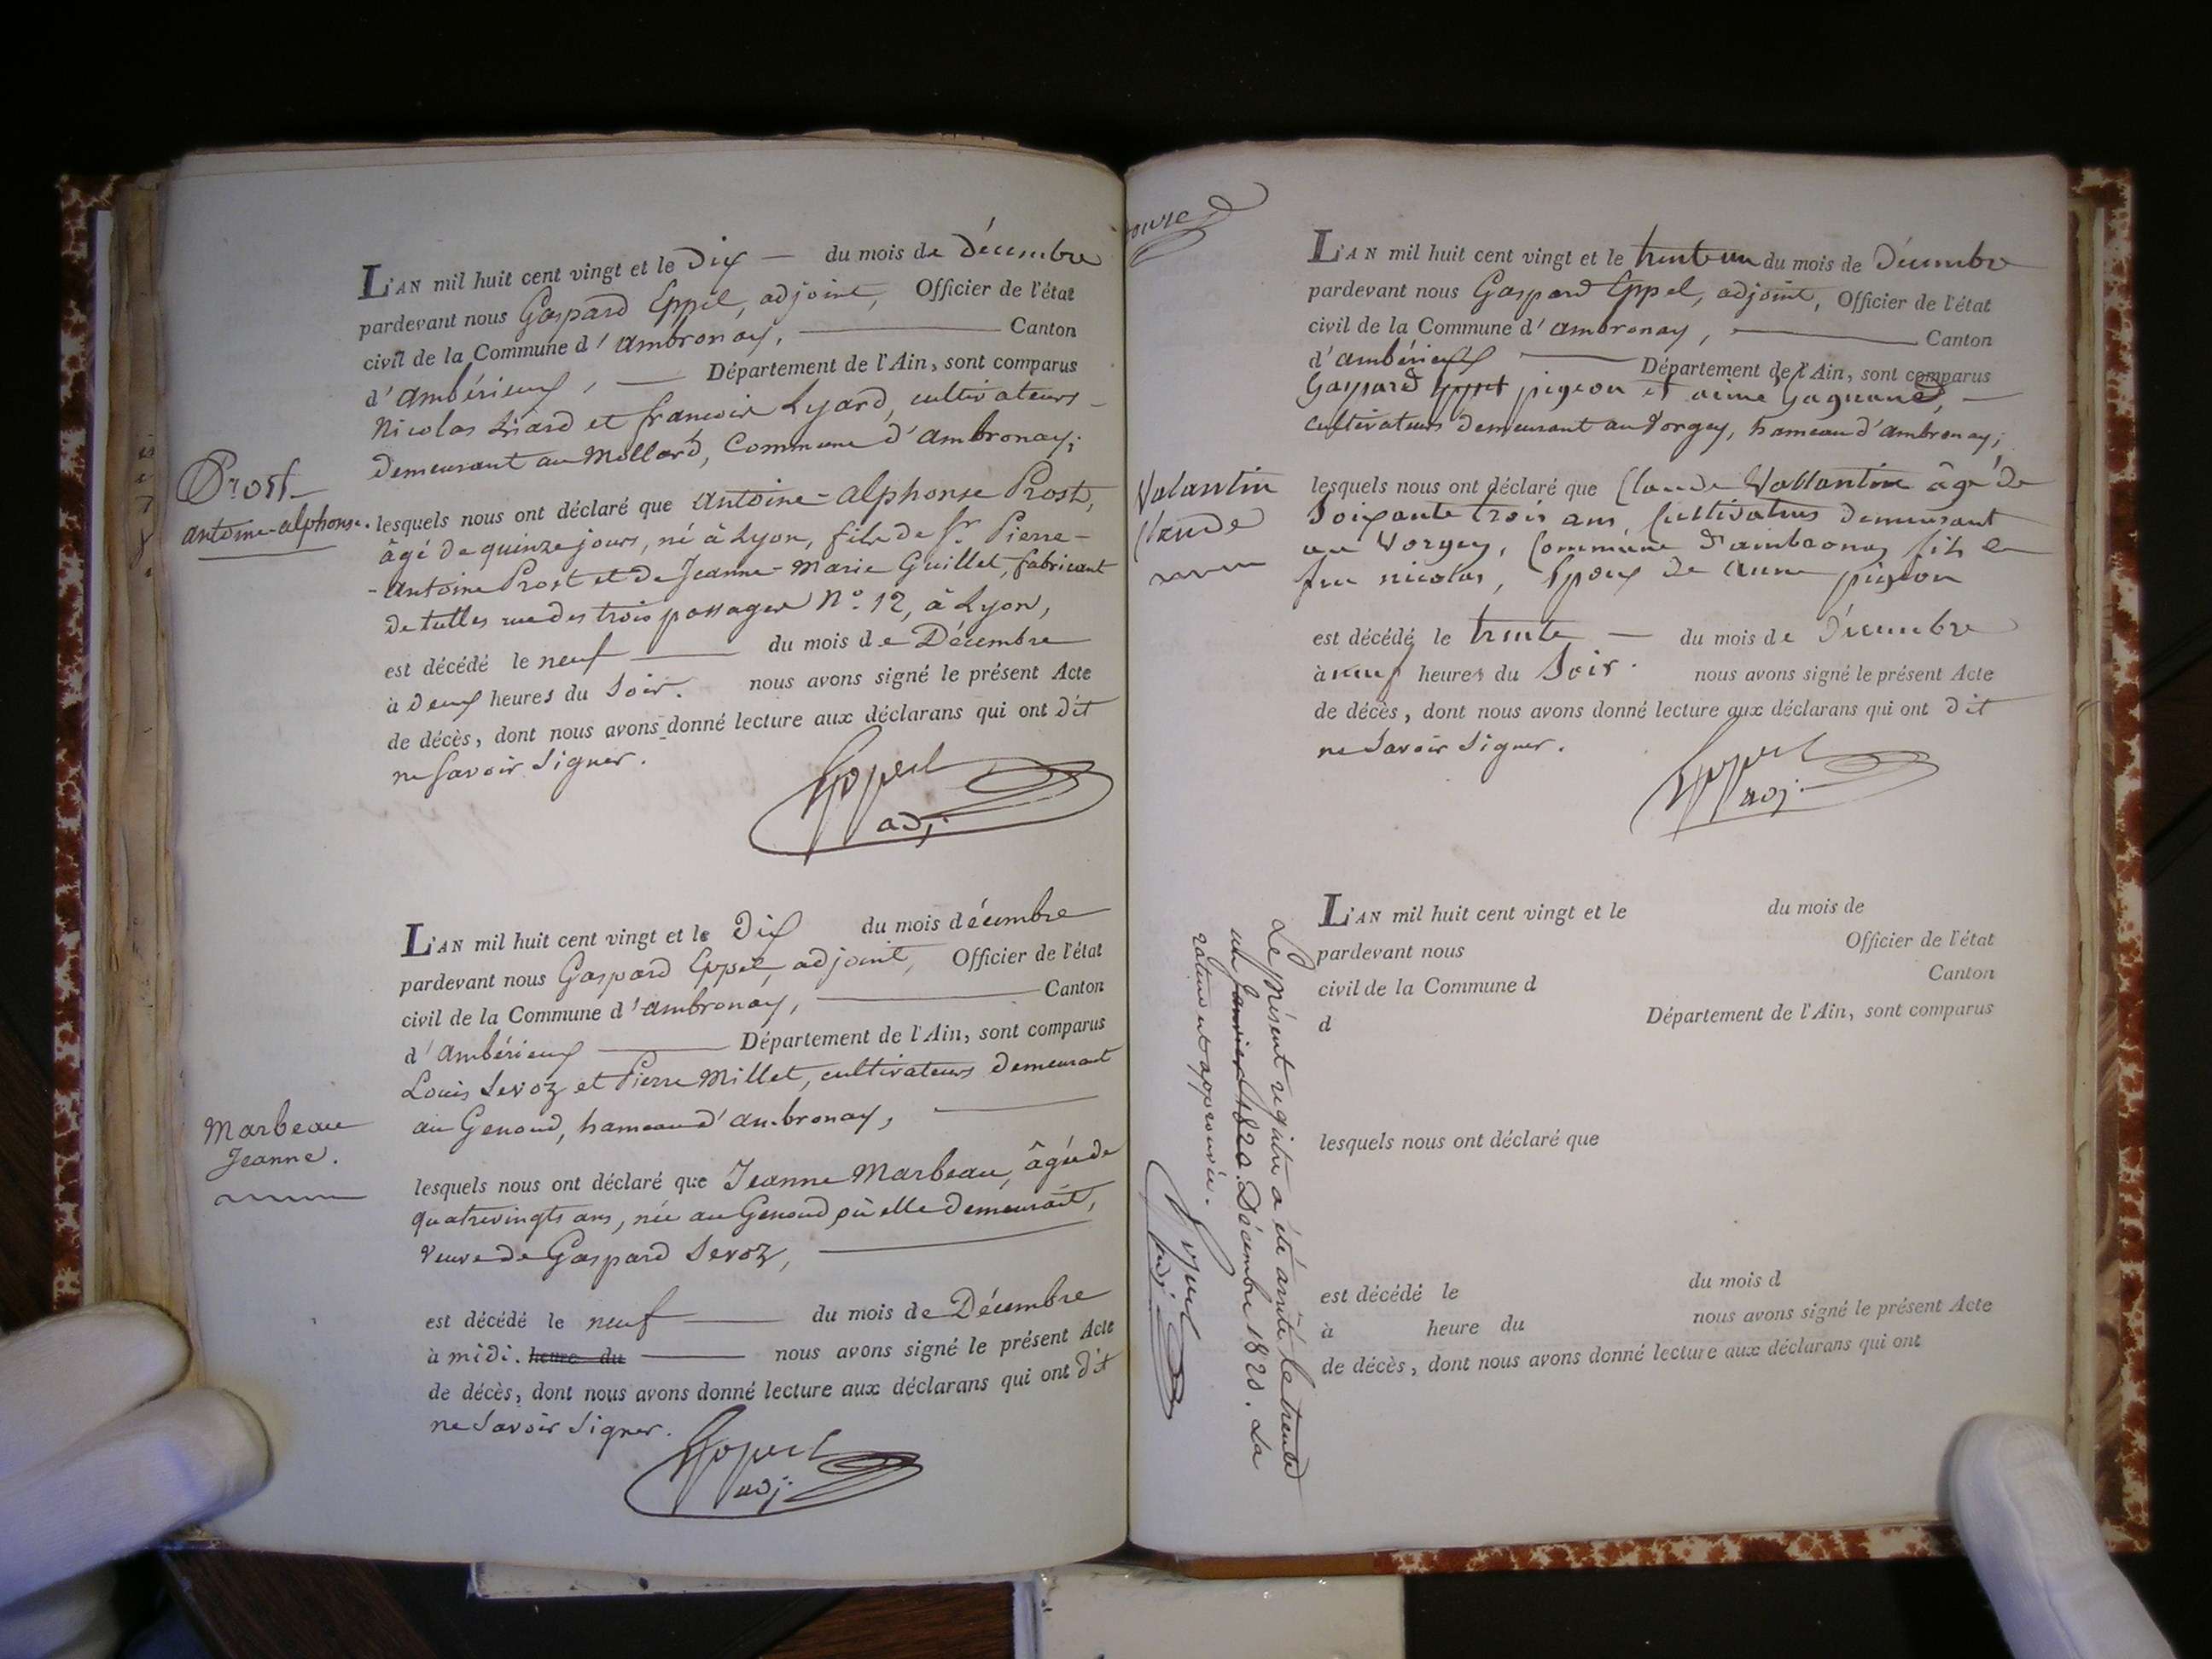 L'AN mil huit cent vingt et le Dix — du mois de Décembre
pardevant nous Gaspard Eppel, adjoint, Officier de l'état
civil de la Commune d'ambronay, — Canton
d'ambérieux, — Département de l'Ain, sont comparus
Nicolas Liard et francois Lyard, cultivateurs
Demeurant au Mollard, Commune d'ambronay;
Prost
antoine-alphonse.
lesquels nous ont déclaré que antoine-alphonse Prost,
âgé de quinze jours, né à Lyon, fils de Sr Pierre-
-antoine Prost et de Jeanne-Marie Guillet, fabricant
de tulles rue des trois passages N.º 12, à Lyon,
est décédé le neuf — du mois de Décembre
à deux heures du Soir. nous avons signé le présent Acte
de décès, dont nous avons donné lecture aux déclarans qui ont dit
ne Savoir Signer.
Eppel
adj.
L'AN mil huit cent vingt et le Dix du mois décembre
pardevant nous Gaspard Eppel, adjoint, Officier de l'état
civil de la Commune d'ambronay, — Canton
d'ambérieux — Département de l'Ain, sont comparus
Louis Sevoz et Pierre Millet, cultivateurs demeurant
au Genoud, hameau d'ambronay, —
Marbeau
Jeanne.
lesquels nous ont déclaré que Jeanne Marbeau, âgée de
quatrevingts ans, née au Genoud où elle demeurait,
veuve de Gaspard Sevoz, —
est décédé le neuf — du mois de Décembre
à midi. heure du — nous avons signé le présent Acte
de décès, dont nous avons donné lecture aux déclarans qui ont dit
ne Savoir Signer.
Eppel
adj.
L'AN mil huit cent vingt et le trente un du mois de Décembre
pardevant nous Gaspard Eppel, adjoint, Officier de l'état
civil de la Commune d'ambronay, — Canton
d'ambérieux — Département de l'Ain, sont comparus
Gaspard pigeon et aimé —
cultivateurs demeurant au Vorgey, hameau d'ambronay;
Valantin
Claude
lesquels nous ont déclaré que Claude Vallantin âgé de
Soixante trois ans, Cultivateur demeurant
au Vorgey, Commune d'ambronay fils de
feu nicolas, Epoux de anne pigeon
est décédé le trente — du mois de Décembre
à neuf heures du Soir. nous avons signé le présent Acte
de décès, dont nous avons donné lecture aux déclarans qui ont dit
ne Savoir Signer.
Eppel
adj.
L'AN mil huit cent vingt et le du mois de
pardevant nous Officier de l'état
civil de la Commune d Canton
d Département de l'Ain, sont comparus
lesquels nous ont déclaré que
est décédé le du mois d
à heure du nous avons signé le présent Acte
de décès, dont nous avons donné lecture aux déclarans qui ont
Le présent registre a été arrêté le trente
un Janvier 1820. Décembre 1820. La
rature est approuvée.
Eppel
adj.